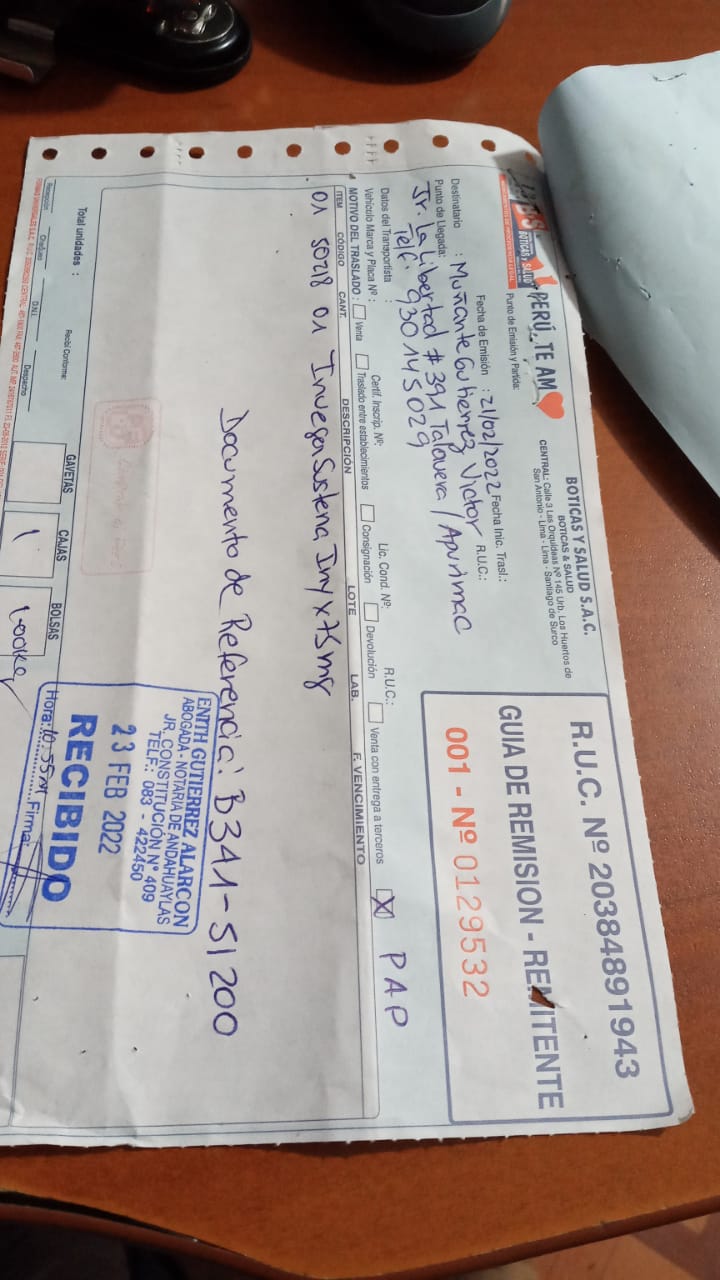 BOTICAS Y SALUD
PERÚ, TE AM
BOTICAS Y SALUD S.A.C.
BOTICAS & SALUD
CENTRAL: Calle 3 Las Orquideas Nº 145 Urb. Los Huertos de
San Antonio - Lima - Lima - Santiago de Surco
R.U.C. Nº 20384891943
GUIA DE REMISION - REMITENTE
001 - Nº 0129532
Punto de Emisión y Partida:
Fecha de Emisión : 21/02/2022 Fecha Inic. Trasl.:
Destinatario : Muñante Gutierrez Victor R.U.C.:
Punto de Llegada:
Jr. La Libertad # 391 Talavera / Apurimac
Telf: 930145029
Datos del Transportista :
Certif. Inscrip. Nº: Lic. Cond. Nº: R.U.C.:
Vehículo Marca y Placa Nº :
MOTIVO DEL TRASLADO : Venta Traslado entre establecimientos Consignación Devolución Venta con entrega a terceros X PAP
ITEM CÓDIGO CANT. DESCRIPCIÓN LOTE LAB. F. VENCIMIENTO
01 50218 01 Invega Sustena Iny x 75mg
Documento de Referencia: B341-51200
ENITH GUTIERREZ ALARCON
ABOGADA - NOTARIA DE ANDAHUAYLAS
JR. CONSTITUCIÓN N° 409
TELF.: 083 - 422450
23 FEB 2022
RECIBIDO
Hora: 10:55 Firma:
Total unidades :
Recibí Conforme:
GAVETAS CAJAS BOLSAS
1
D.N.I. Despacho